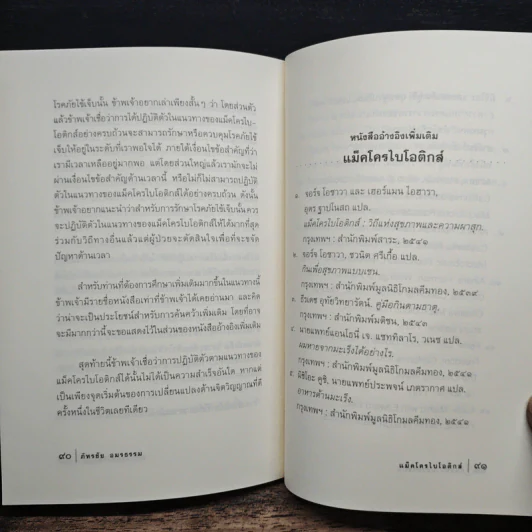 โรคภัยไข้เจ็บนั้น ข้าพเจ้าอยากเล่าเพียงสั้นๆ ว่า โดยส่วนตัว
แล้วข้าพเจ้าเชื่อว่าการได้ปฏิบัติตัวในแนวทางของแม็คโครไบ-
โอติกส์อย่างครบถ้วนจะสามารถรักษาหรือควบคุมโรคภัยไข้
เจ็บให้อยู่ในระดับที่เราพอใจได้ ภายใต้เงื่อนไขข้อสำคัญที่ว่า
เรามีเวลาเหลืออยู่มากพอ แต่โดยส่วนใหญ่แล้วเรามักจะไม่
ผ่านเงื่อนไขข้อสำคัญด้านเวลานี้ หรือไม่ก็ไม่สามารถปฏิบัติ
ตัวในแนวทางของแม็คโครไบโอติกส์ได้อย่างครบถ้วน ดังนั้น
ข้าพเจ้าอยากแนะนำว่าสำหรับการรักษาโรคภัยไข้เจ็บนั้นควร
จะปฏิบัติตัวในแนวทางของแม็คโครไบโอติกส์ให้ได้มากที่สุด
ร่วมกับวิธีทางอื่นแล้วแต่ผู้ป่วยจะตัดสินใจเพื่อที่จะขจัด
ปัญหาด้านเวลา
สำหรับท่านที่ต้องการศึกษาเพิ่มเติมมากขึ้นในแนวทางนี้
ข้าพเจ้ามีรายชื่อหนังสือเท่าที่ข้าพเจ้าได้เคยอ่านมา และคิด
ว่าน่าจะเป็นประโยชน์สำหรับการค้นคว้าเพิ่มเติม โดยที่อาจ
จะมีมากกว่านี้จะขอแสดงไว้ในส่วนของหนังสืออ้างอิงเพิ่มเติม
สุดท้ายนี้ข้าพเจ้าเชื่อว่าการปฏิบัติตัวตามแนวทางของ
แม็คโครไบโอติกส์ได้นั้นไม่ได้เป็นความสำเร็จอันใด หากแต่
เป็นเพียงจุดเริ่มต้นของการเปลี่ยนแปลงด้านจิตวิญญาณที่ดี
ครั้งหนึ่งในชีวิตเลยทีเดียว
๙๐ ภัทรชัย อมรธรรม
หนังสืออ้างอิงเพิ่มเติม
แม็คโครไบโอติกส์
๑. จอร์จ โอชาวา และ เฮอร์แมน ไอฮารา,
สุตร ฐาปโนสถ แปล.
แม็คโครไบโอติกส์ : วิถีแห่งสุขภาพและความผาสุก.
กรุงเทพฯ : สำนักพิมพ์สาระ, ๒๕๔๑
๒. จอร์จ โอชาวา, ชวนิต ศรีเกื้อ แปล.
กินเพื่อสุขภาพแบบเซน.
กรุงเทพฯ : สำนักพิมพ์มูลนิธิโกมลคีมทอง, ๒๕๓๙
๓. ธีรเดช อุทัยวิทยารัตน์. คู่มือกินตามธาตุ.
กรุงเทพฯ : สำนักพิมพ์มติชน, ๒๕๔๓
๔. นายแพทย์แอนโธนี่ เจ. แซททิลาโร, วเนช แปล.
ผมหายจากมะเร็งได้อย่างไร.
กรุงเทพฯ : สำนักพิมพ์มูลนิธิโกมลคีมทอง, ๒๕๔๑
๕. มิชิโอะ คูชิ, นายแพทย์ประพจน์ เภตรากาศ แปล.
อาหารต้านมะเร็ง.
กรุงเทพฯ : สำนักพิมพ์มูลนิธิโกมลคีมทอง, ๒๕๔๑
แม็คโครไบโอติกส์ ๙๑